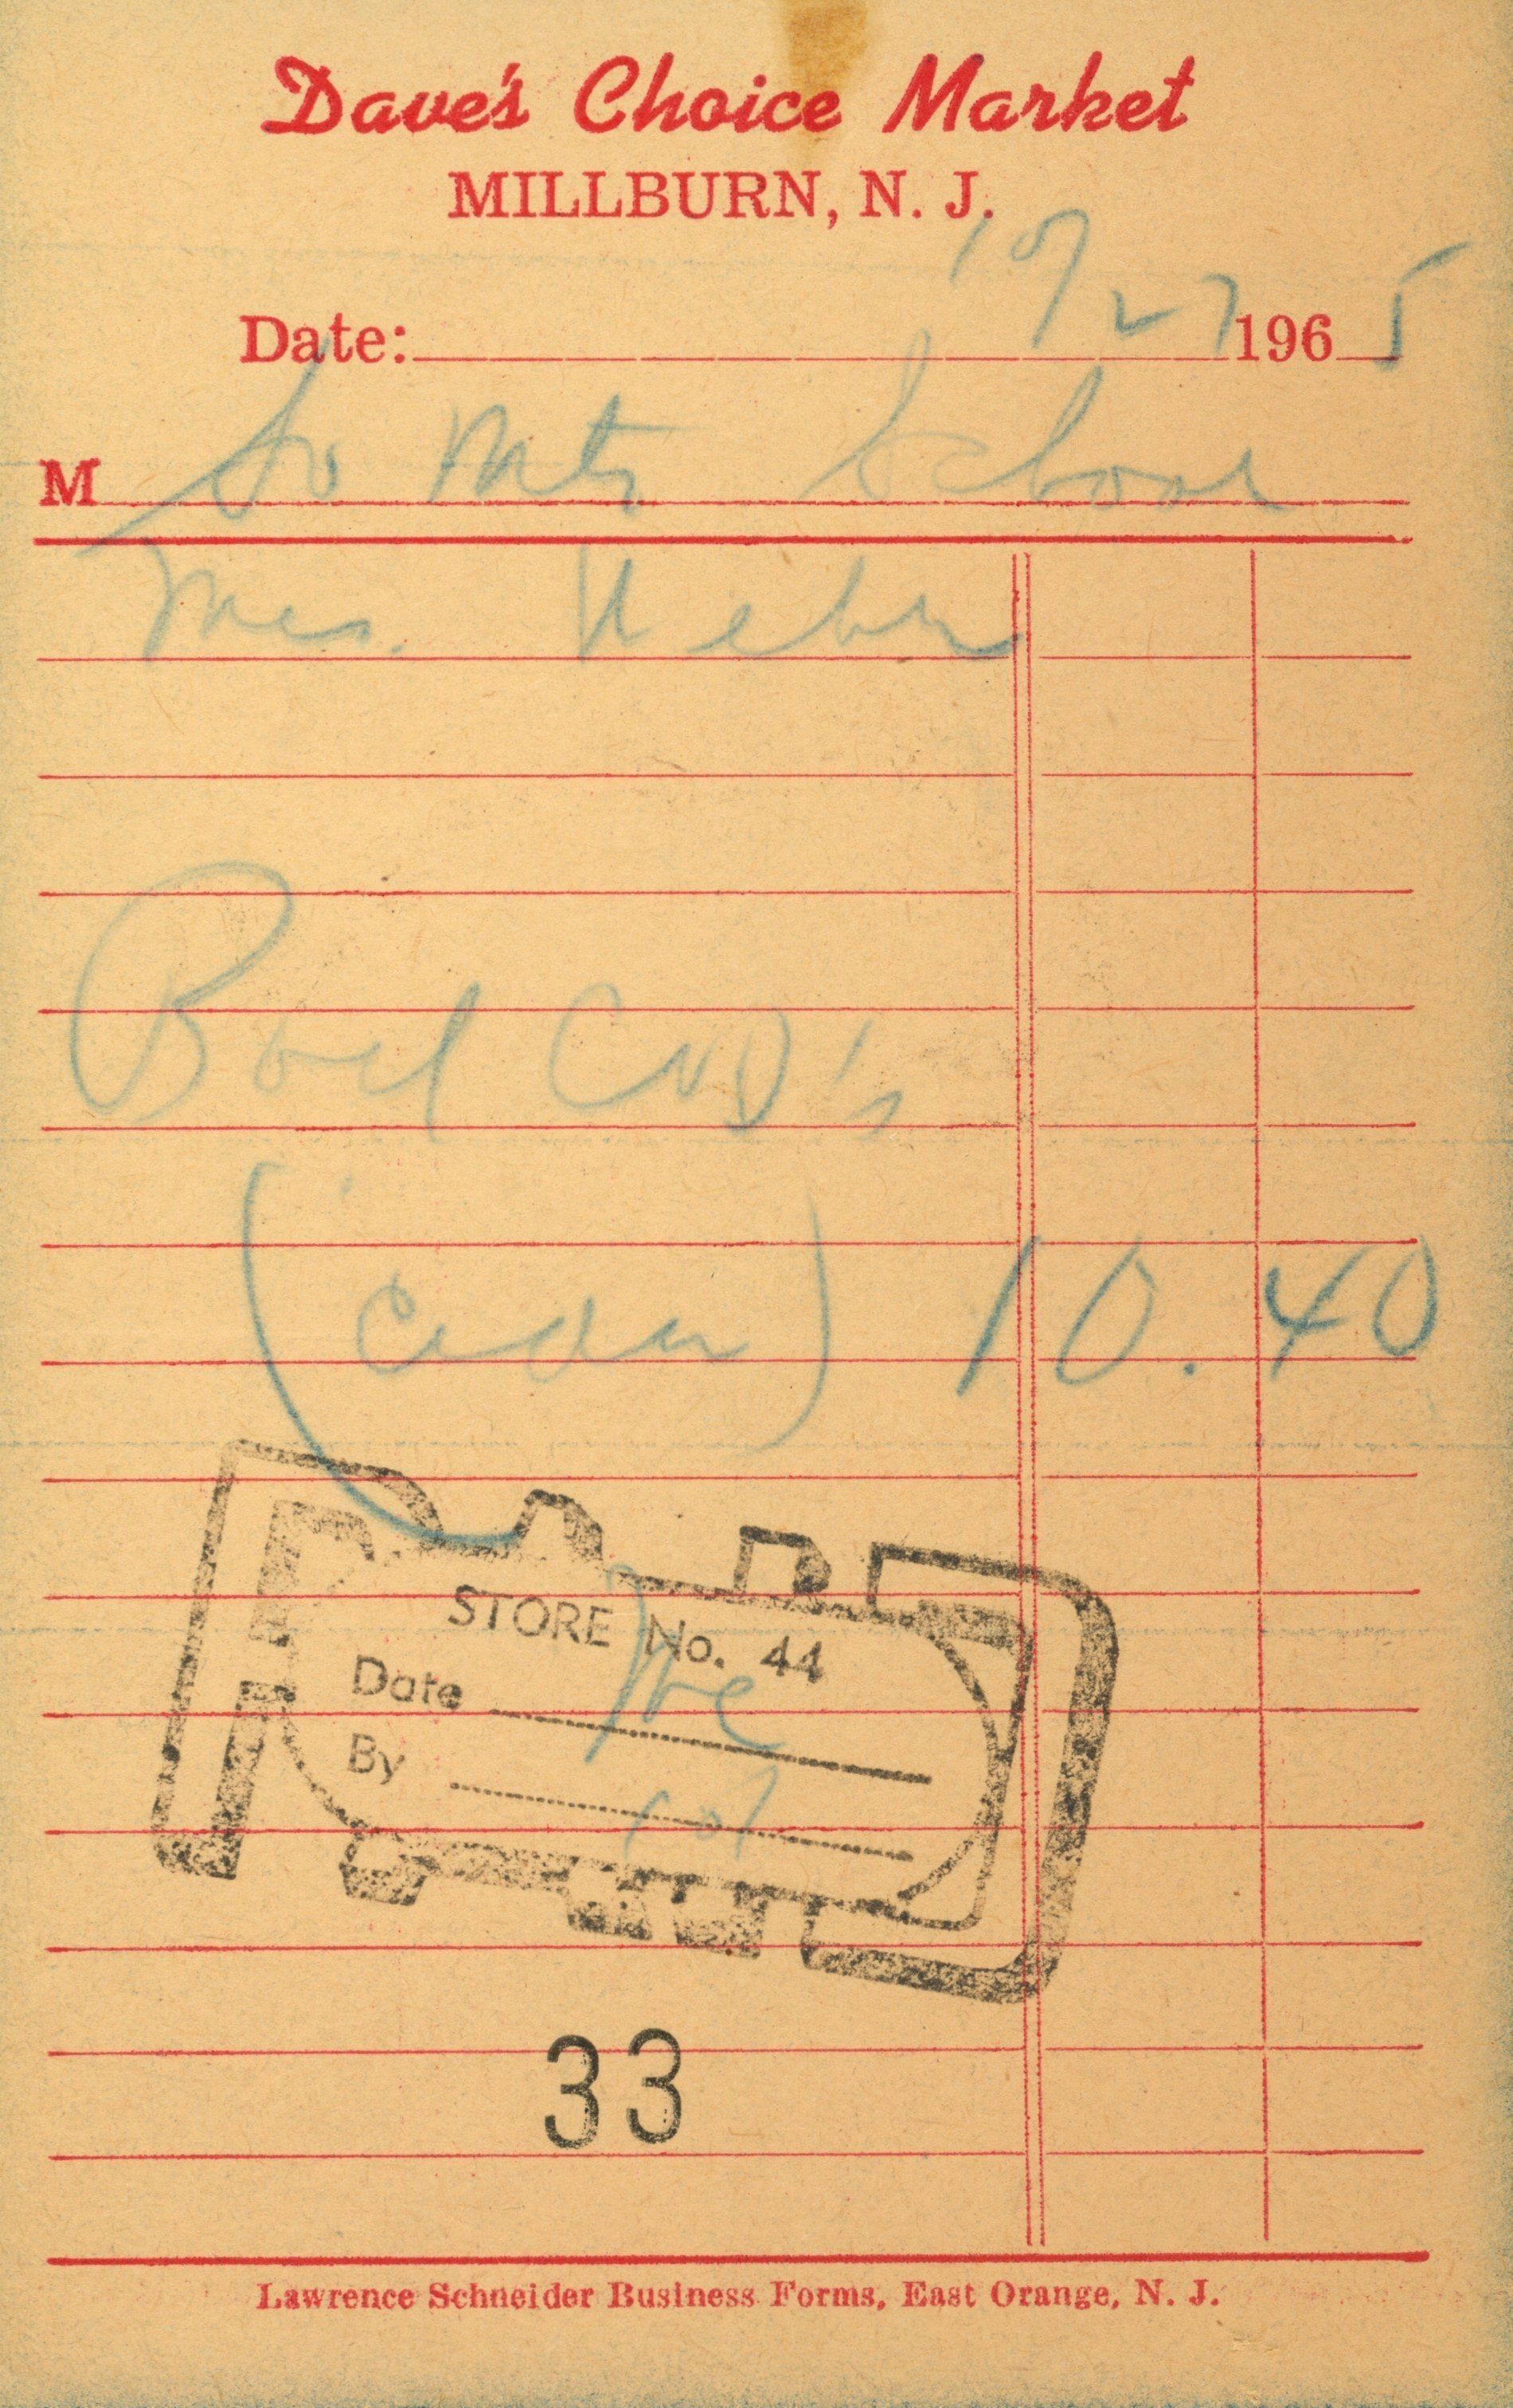 Dave's Choice Market
MILLBURN, N. J.
Date: 10/27 1965
M So Mtn School
Mrs. Weber
(Cider) 10.40
STORE No. 44
Date
By
33
Lawrence Schneider Business Forms, East Orange, N. J.